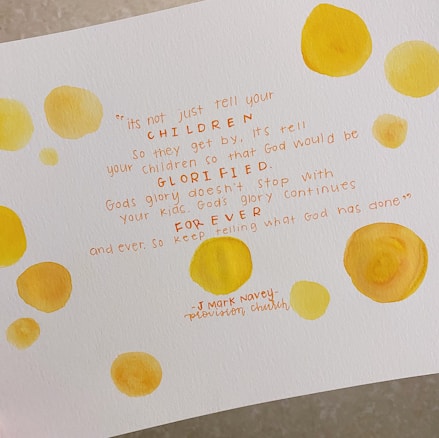 "its not just tell your
CHILDREN
so they get by, its tell
your children so that God would be
GLORIFIED.
Gods glory doesn't stop with
your kids. Gods glory continues
FOREVER
and ever, so keep telling what God has done"
-J Mark Navey-
provision church